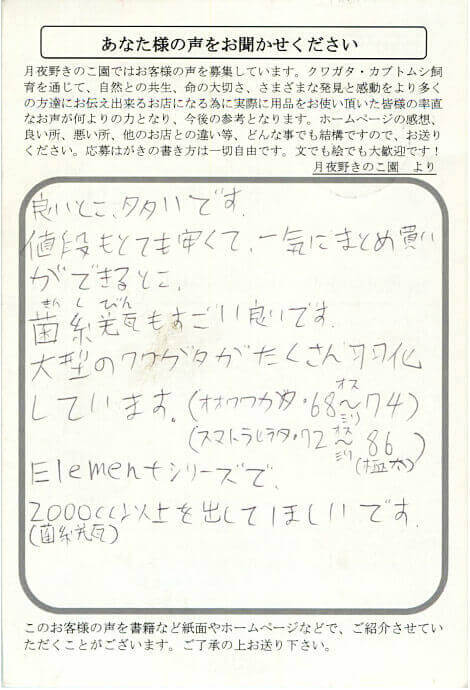 あなた様の声をお聞かせください
月夜野きのこ園ではお客様の声を募集しています。クワガタ・カブトムシ飼
育を通じて、自然との共生、命の大切さ、さまざまな発見と感動をより多く
の方達にお伝え出来るお店になる為に実際に用品をお使い頂いた皆様の率直
なお声が何よりの力となり、今後の参考となります。ホームページの感想、
良い所、悪い所、他のお店との違い等、どんな事でも結構ですので、お送り
ください。応募はがきの書き方は一切自由です。文でも絵でも大歓迎です！
月夜野きのこ園　より
良いとこ、タタいです。
値段もとても安くて、一気にまとめ買い
ができるとこ、
きんしびん
菌糸瓶もすごい良いです。
大型のクワガタがたくさん羽化
しています。(オオクワガタ・68オス〜ミリ74)
(スマトラヒラタ・72オス〜ミリ86(極太))
Elementシリーズで、
2000cc以上を出してほしいです。
(菌糸瓶)
このお客様の声を書籍など紙面やホームページなどで、ご紹介させてい
ただくことがございます。ご了承の上お送り下さい。